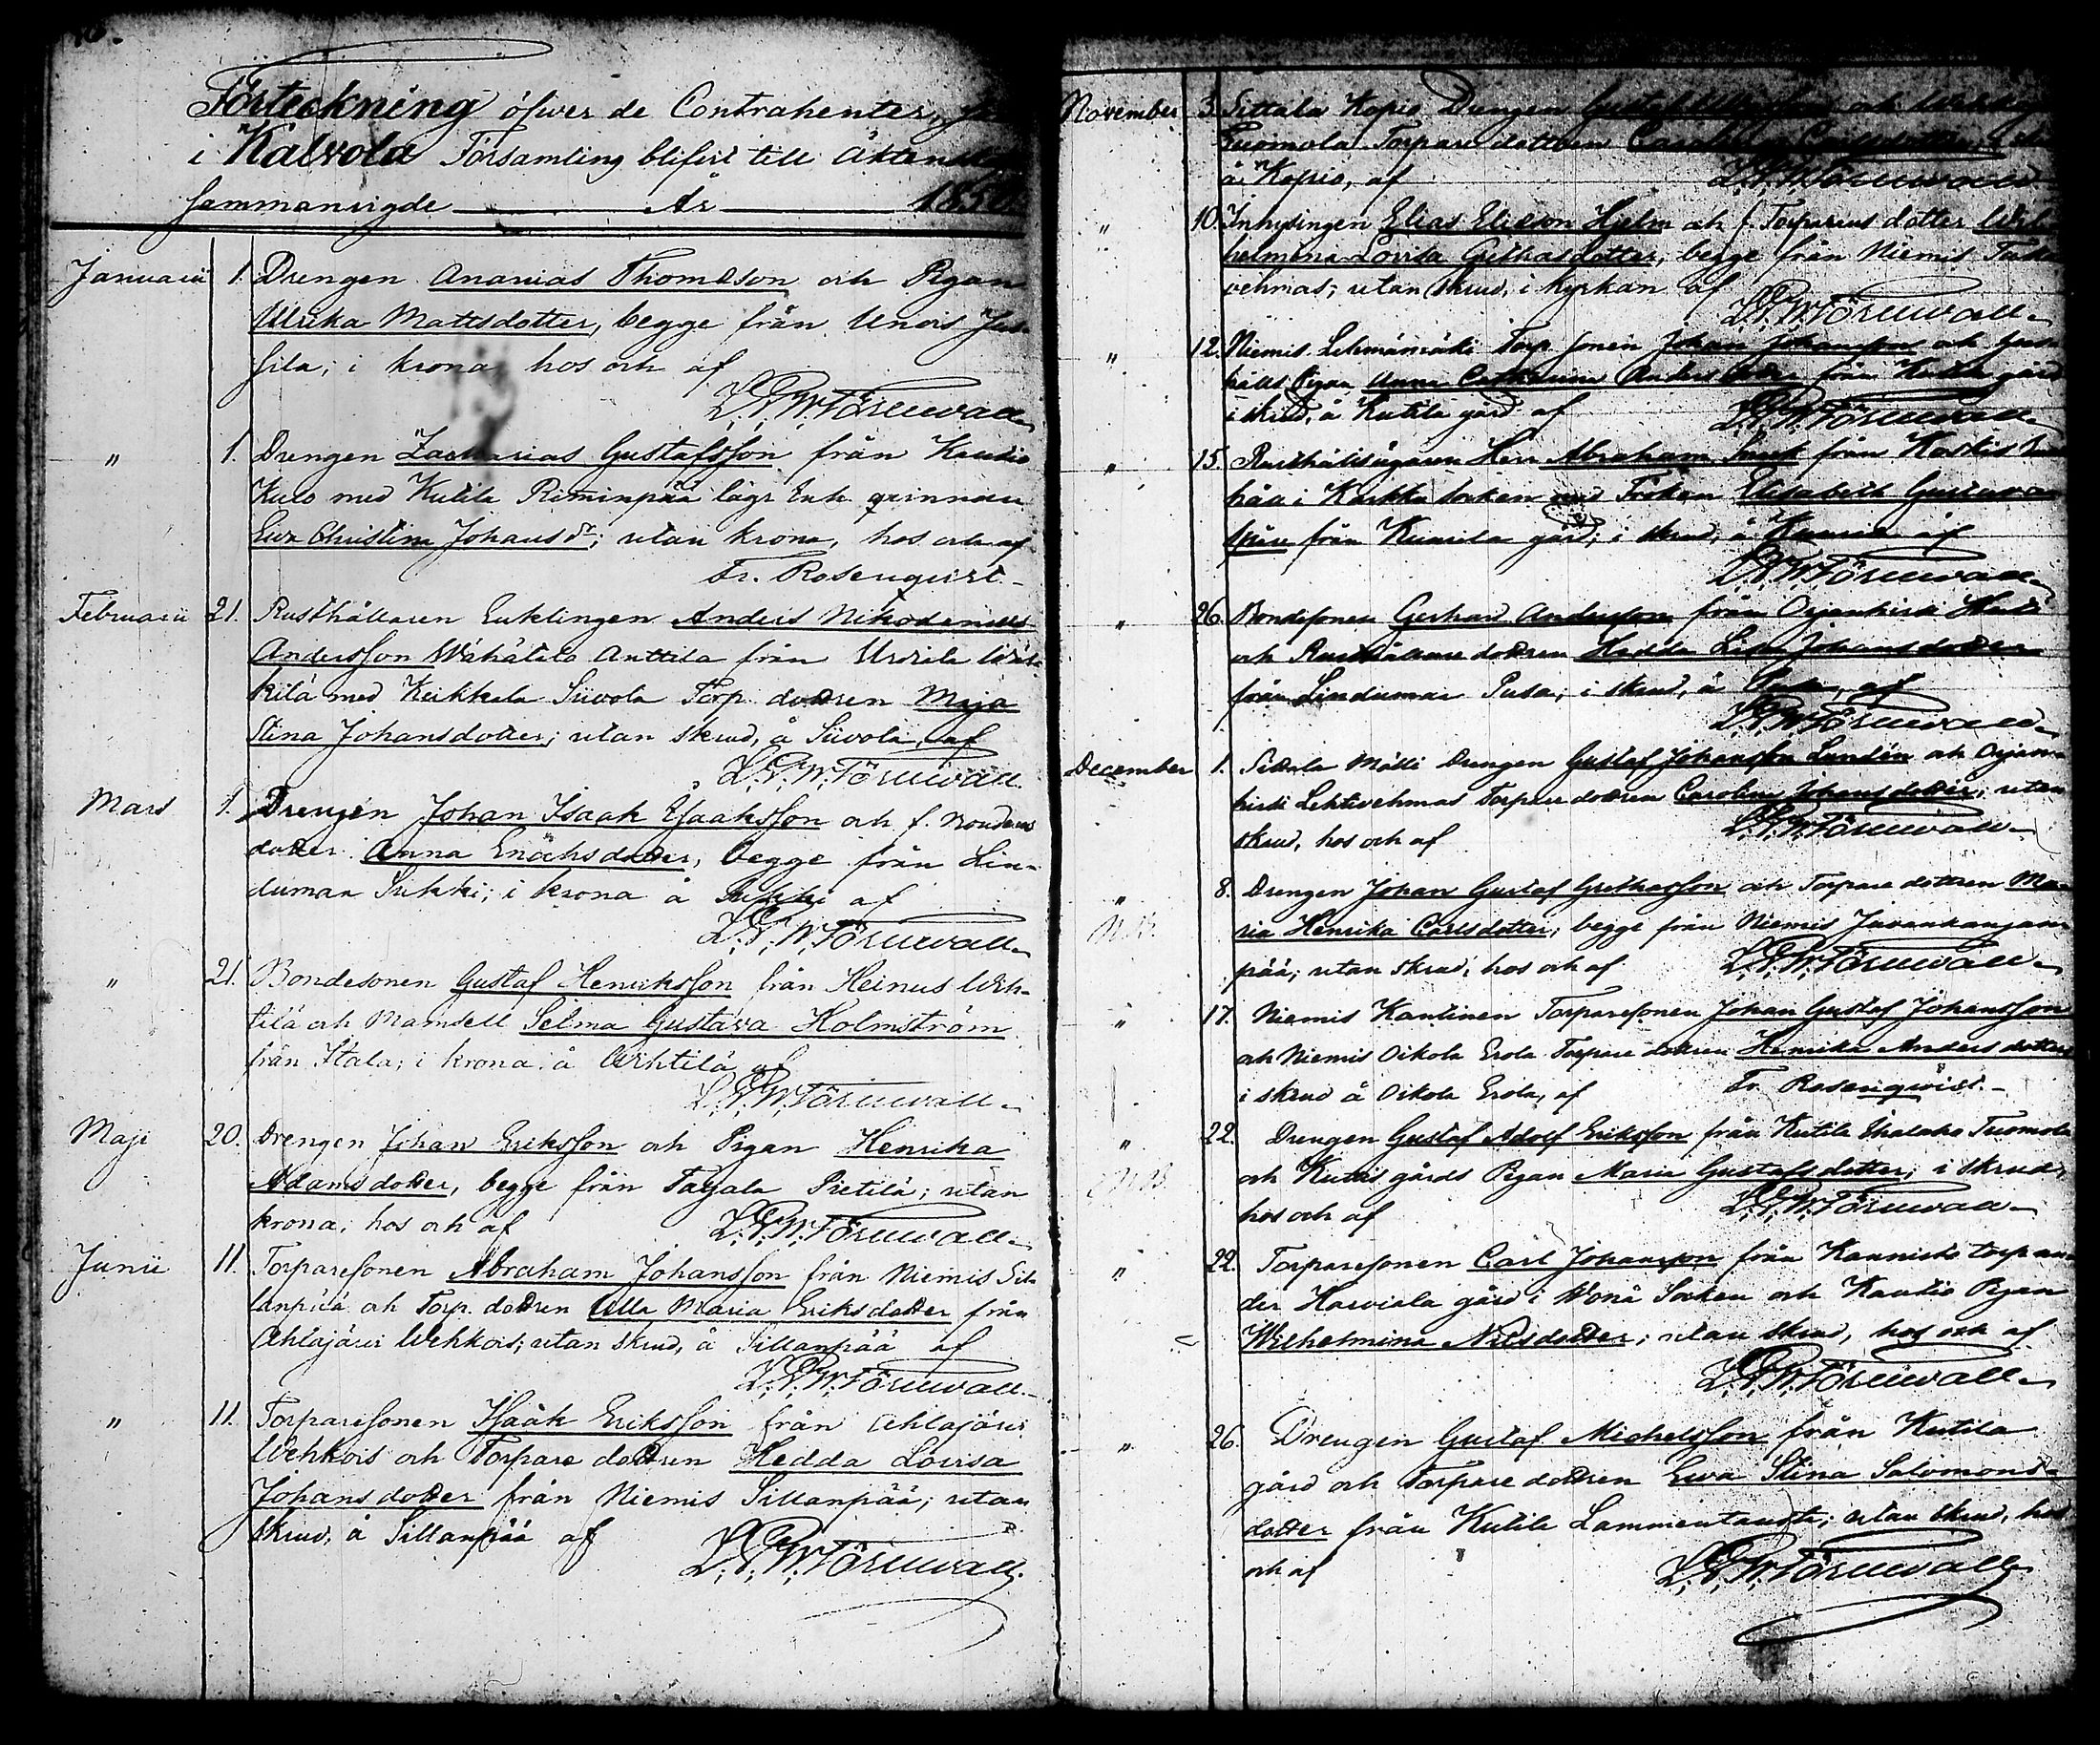 Förteckning öfwer de Contrahenter,
i Kalvola Församling blifvit till Äktenskap
sammanvigde År 1850.
Januarii 1. Drengen Ananias Thomasson och Pigan
Ulrika Mattsdotter, begge från Unois
sila; i krona, hos och af
L.G.W. Törnwall
" 1. Drengen Zacharias Gustafsson från Kautio
med Kutila Riminpää lägr Enk qvinnan
Ewa Christina Johansdr; utan krona, hos och af
Fr. Rosenqvist
Februarii 21. Rusthållaren Enklingen Anders Nikodemus
Andersson Wähätalo Anttila från Urviala
kilä med Keikkala Siivola Torp. dottren Maja
Stina Johansdotter; utan skrud, å Siivola, af
L.G.W. Törnwall
Mars 1. Drengen Johan Isaak Esaaksson och f. Bondens
dotter Anna Enochsdotter, begge från Lin-
duman Sukki; i krona å Sukki af
L.G.W. Törnwall
" 21. Bondesonen Gustaf Henriksson från Heinus Weh-
tilä och Mamsell Selma Gustava Holmström
från Itala; i krona å Wehtilä af
L.G.W. Törnwall
Maji 20. Drengen Johan Eriksson och Pigan Henrika
Adamsdotter, begge från Taljala Pietilä; utan
krona, hos och af L.G.W. Törnwall
Junii 11. Torparesonen Abraham Johansson från Niemis Sil-
lanpää och Torp. dottren Ulla Maria Eriksdotter från
Ahlajärvi Wehkois; utan skrud, å Sillanpää af
L.G.W. Törnwall
" 11. Torparesonen Isaak Eriksson från Ahlajärvi
Wehkois och Torpare dottren Hedda Lovisa
Johansdotter från Niemis Sillanpää; utan
skrud, å Sillanpää af L.G.W. Törnwall
November 3. Sittala Kopio Drengen och
Tuomola Torpare dottren Carolina Carlsdotter,
å Kopio, af L.G.W. Törnwall
" 10. Inhysingen Elias Eliæson Hjelm och f. Torparens dotter Wil-
helmina Lovisa Gethasdotter, begge från Niemis
vehmas; utan skrud, i kyrkan af
L.G.W. Törnwall
" 12. Niemis Lehmämäki Torp. sonen Johan Johansson och
hålls Pigan Anna Catharina Andersdotter från Kutila gård
i skrud, å Kutila gård af L.G.W. Törnwall
" 15. Rusthållsägaren Herr Abraham från
i Karkku Socken med Fröken Elisabeth Gustava
från Kuurila gård; i skrud, å Kuurila af
L.G.W. Törnwall
" 26. Bondesonen Gerhard Andersson från Orjankirst
och Rusthållare dottren Hedda Johansdotter
från Lindumar Pusa; i skrud, å Pusa, af
L.G.W. Törnwall
December 1. Sittala Mälli Drengen Gustaf Johansson Lundén och Orjan-
hirst Lehtivehmas Torpare dottren Carolina Johansdotter; utan
skrud, hos och af L.G.W. Törnwall
" 8. Drengen Johan Gustaf Gerthasson och Torpare dottren Ma-
NB. ria Henrika Carlsdotter, begge från Niemis Juvankanjan-
pää; utan skrud, hos och af L.G.W. Törnwall
" 17. Niemis Kantinen Torparesonen Johan Gustaf Johansson
och Niemis Oikola Erola Torpare dottren Henrika Andersdotter
i skrud å Oikola Erola, af Fr. Rosenqwist
" 22. Drengen Gustaf Adolf Eriksson från Kutila Uhalako Tuomola
NB. och Kutila gårds Pigan Maria Gustafsdotter; i skrud,
hos och af L.G.W. Törnwall
" 22. Torparesonen Carl Johansson från Kannisto torp un-
der Harviala gård i Wånå Socken och Kautio Pigan
Wilhelmina Nilsdotter; utan skrud, hos och af
L.G.W. Törnwall
" 26. Drengen Gustaf Michelsson från Kutila
gård och Torpare dottren Ewa Stina Salomons-
dotter från Kutila Lammentausta; utan skrud, hos
och af L.G.W. Törnwall